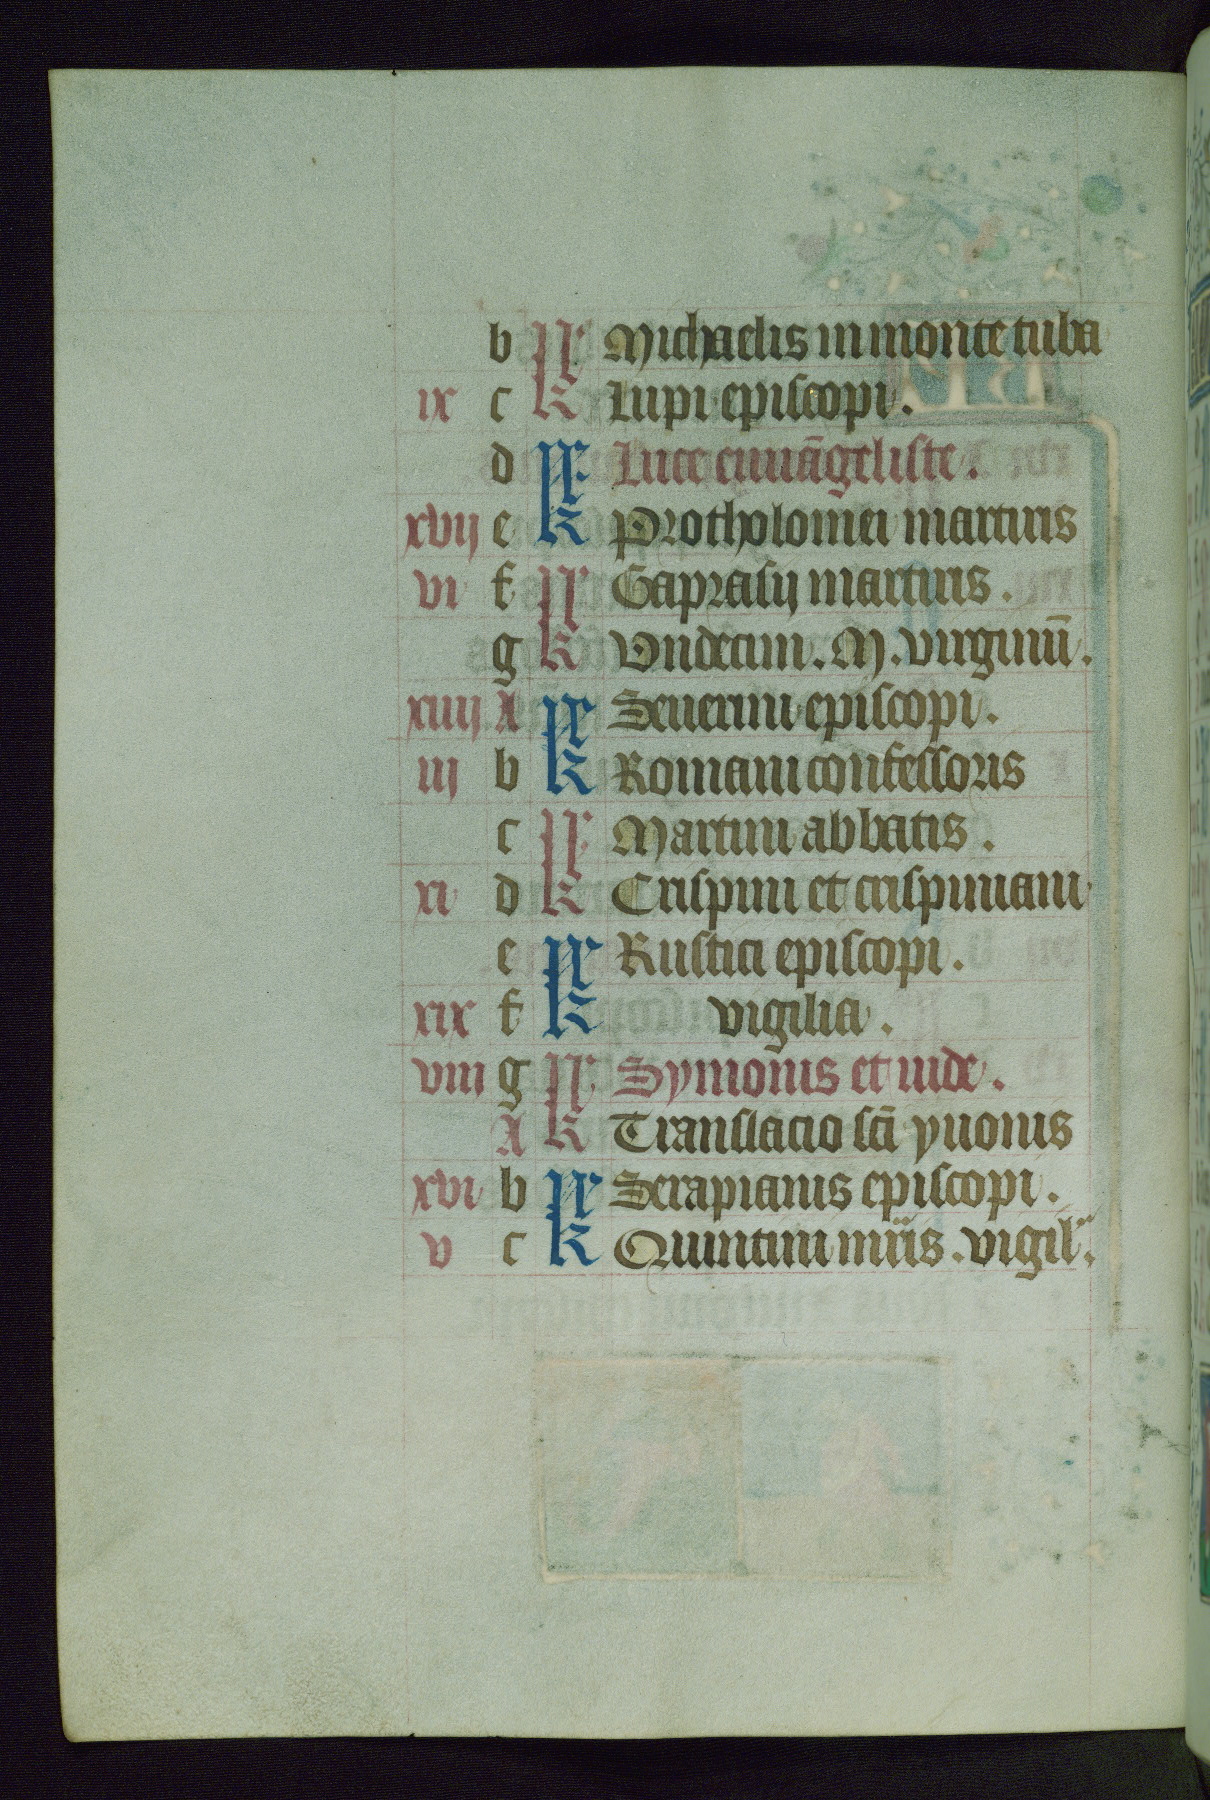 b kl Michaelis in monte tuba
ix c kl Lupi episcopi.
d kl Luce euuāgeliste.
xvij e kl Ptholomei martiris
vi f kl Gaprasij martiris.
g kl Vndecim. M. virginū.
xiiij A kl Seuerini episcopi.
iij b kl Romani confessoris
c kl Martini abbatis.
xi d kl Crispini et crispiniani
e kl Rustici episcopi.
xix f kl vigilia.
viii g kl Symonis et iude.
A kl Translacio scī yuonis
xvi b kl Serapianis episcopi.
v c kl Quintini mr̄is. vigil'.